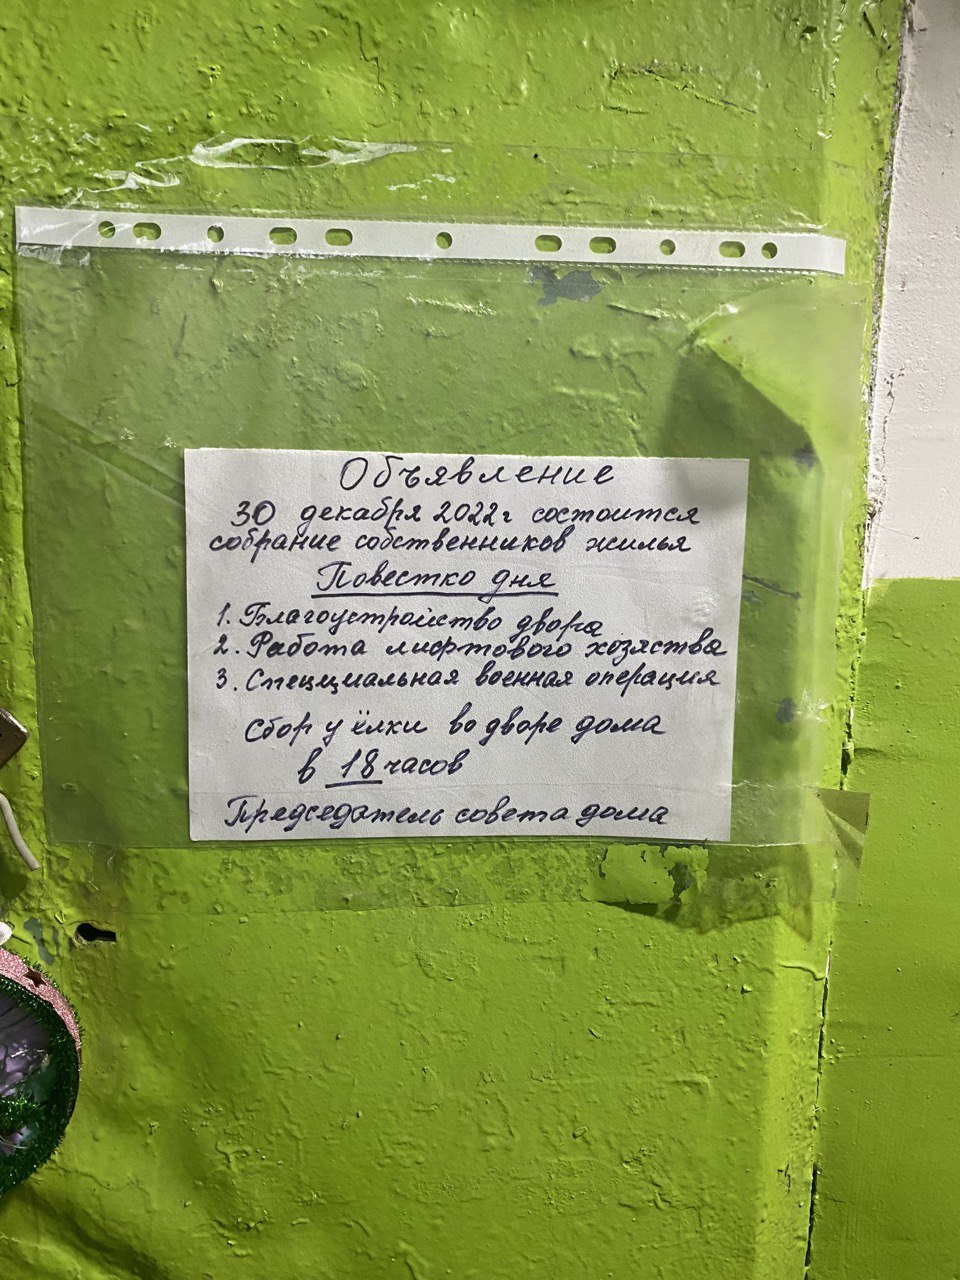 Объявление
30 декабря 2022г состоится
собрание собственников жилья
Повестко дня
1. Благоустройство двора
2. Работа лифтового хозяства
3. Специальная военная операция
Сбор у ёлки во дворе дома
в 18 часов
Председатель совета дома